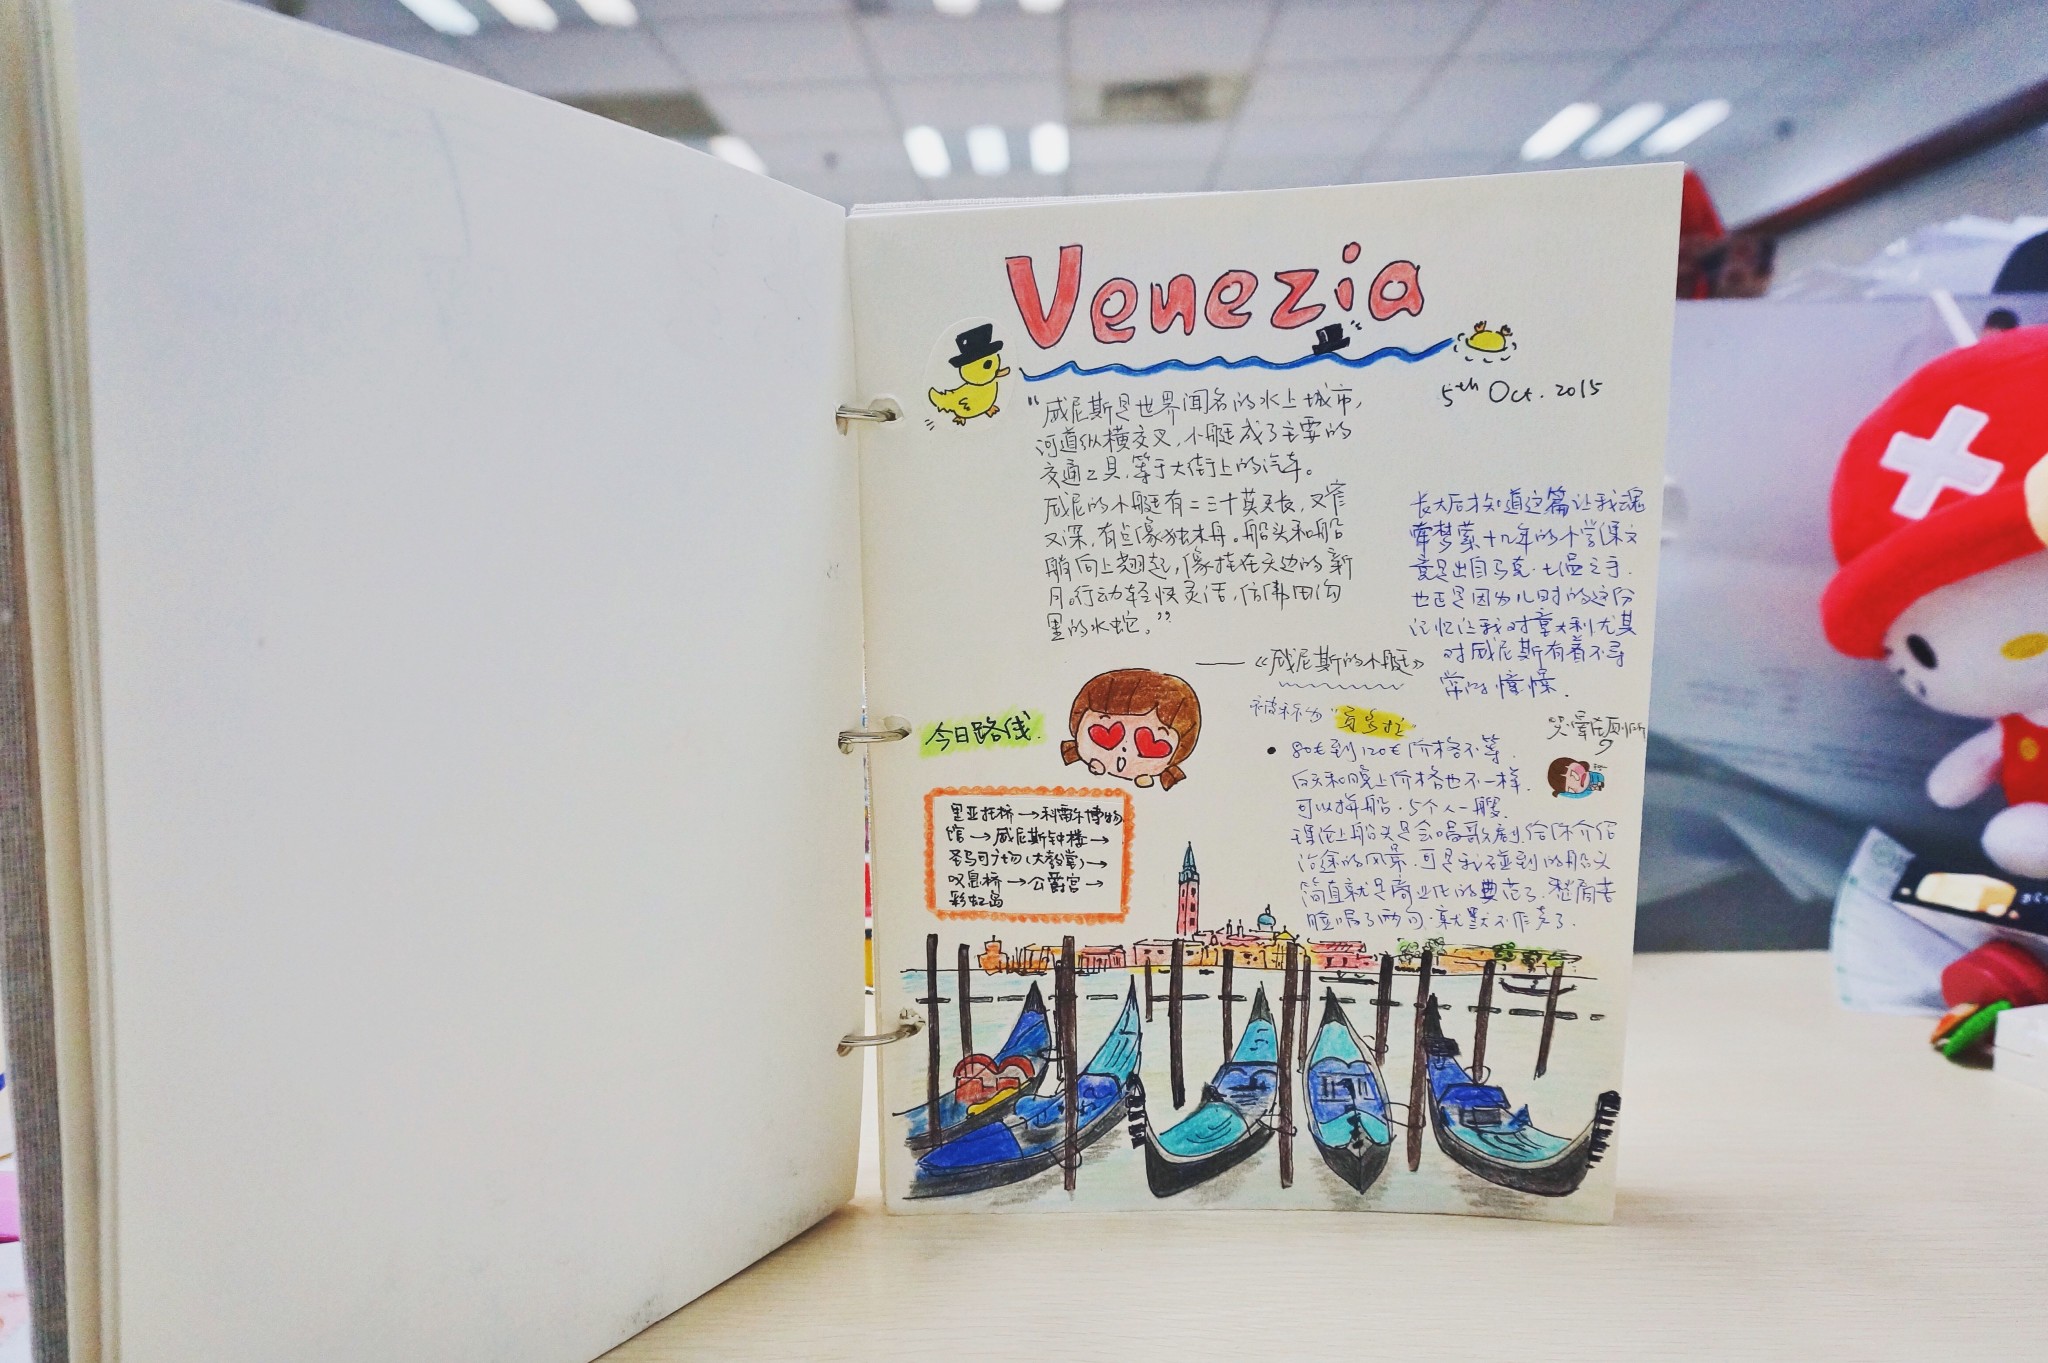 Venezia
5th Oct. 2015
“威尼斯是世界闻名的水上城市，
河道纵横交叉，小艇成了主要的
交通工具，等于大街上的汽车。
威尼的小艇有二三十英尺长，又窄
又深，有点像独木舟。船头和船
艄向上翘起，像挂在天边的新
月。行动轻快灵活，仿佛田沟
里的水蛇。”
——《威尼斯的小艇》
长大后才知道这篇让我魂
牵梦萦十几年的小学课文
竟是出自马克·吐温之手.
也正是因为儿时的这份
记忆让我对意大利尤其
对威尼斯有着不寻
常的憧憬.
今日路线.
里亚托桥→科雷尔博物
馆→威尼斯钟楼→
圣马可广场(大教堂)→
叹息桥→公爵宫→
彩虹岛
被称为“贡多拉”
哭晕在厕所
• 80€到120€价格不等.
白天和晚上价格也不一样.
可以拼船.5个人一艘.
理论上船夫是会唱歌剧给你介绍
沿途的风景.可是我碰到的船夫
简直就是商业化的典范了.
脸唱了两句.就默不作声了.